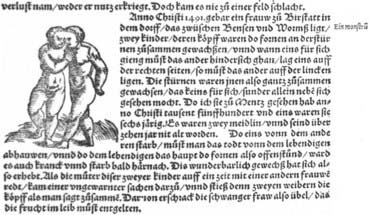 verlust nam/weder er nutz erkriegt. Doch kam es nie zů einer feld schlacht.
Anno Christi 1491. gebar ein frauw zů Birstatt in
dem dorff/ das zwüschen Bensen vnnd Womß ligt/
zwey kinder/ deren köpff waren do fornen an der stür-
nen zůsammen gewachßen/ vnnd wann eins für sich
gieng můst das ander hindersich ghan/ lag eins auff
der rechten seiten/ so můst das ander auff der lincken
ligen. Die stürnen waren jnen also gantz zůsammen
gewachsen/ das keins für sich/ sunder allein nebē sich
gesehen mocht. Do ich sie zů Mentz gesehen hab an-
no Christi tausent fünffhundert vnd eins waren sie
sechs järig. Es waren zwey meidlin/ vnnd seind über
zehen jar nit alt worden. Do eins vonn dem ande
ren starb/ můst man das todt vonn dem lebendigen
abhauwen/ vnnd do dem lebendigen das haupt do fornen also offenstůnd/ ward
es auch kranck vnnd starb bald hårnach. Diß wunderbarlich gewechß hat sich al-
so erhebt. Als die můter diser zweyer kinder auff ein zeit mit einer andern frauwē
redt/ kam einer vngewarnter sachen darzů/ vnnd stieß denn zweyen weibern die
köpff als man sagt zůsamē. Darvon erschrack die schwanger fraw also übel/ das
die frucht im leib můst entgelten.
Ein monstrū